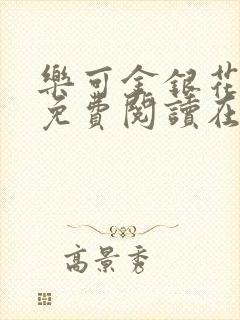 樂可金銀花
免費閱讀在
高景秀